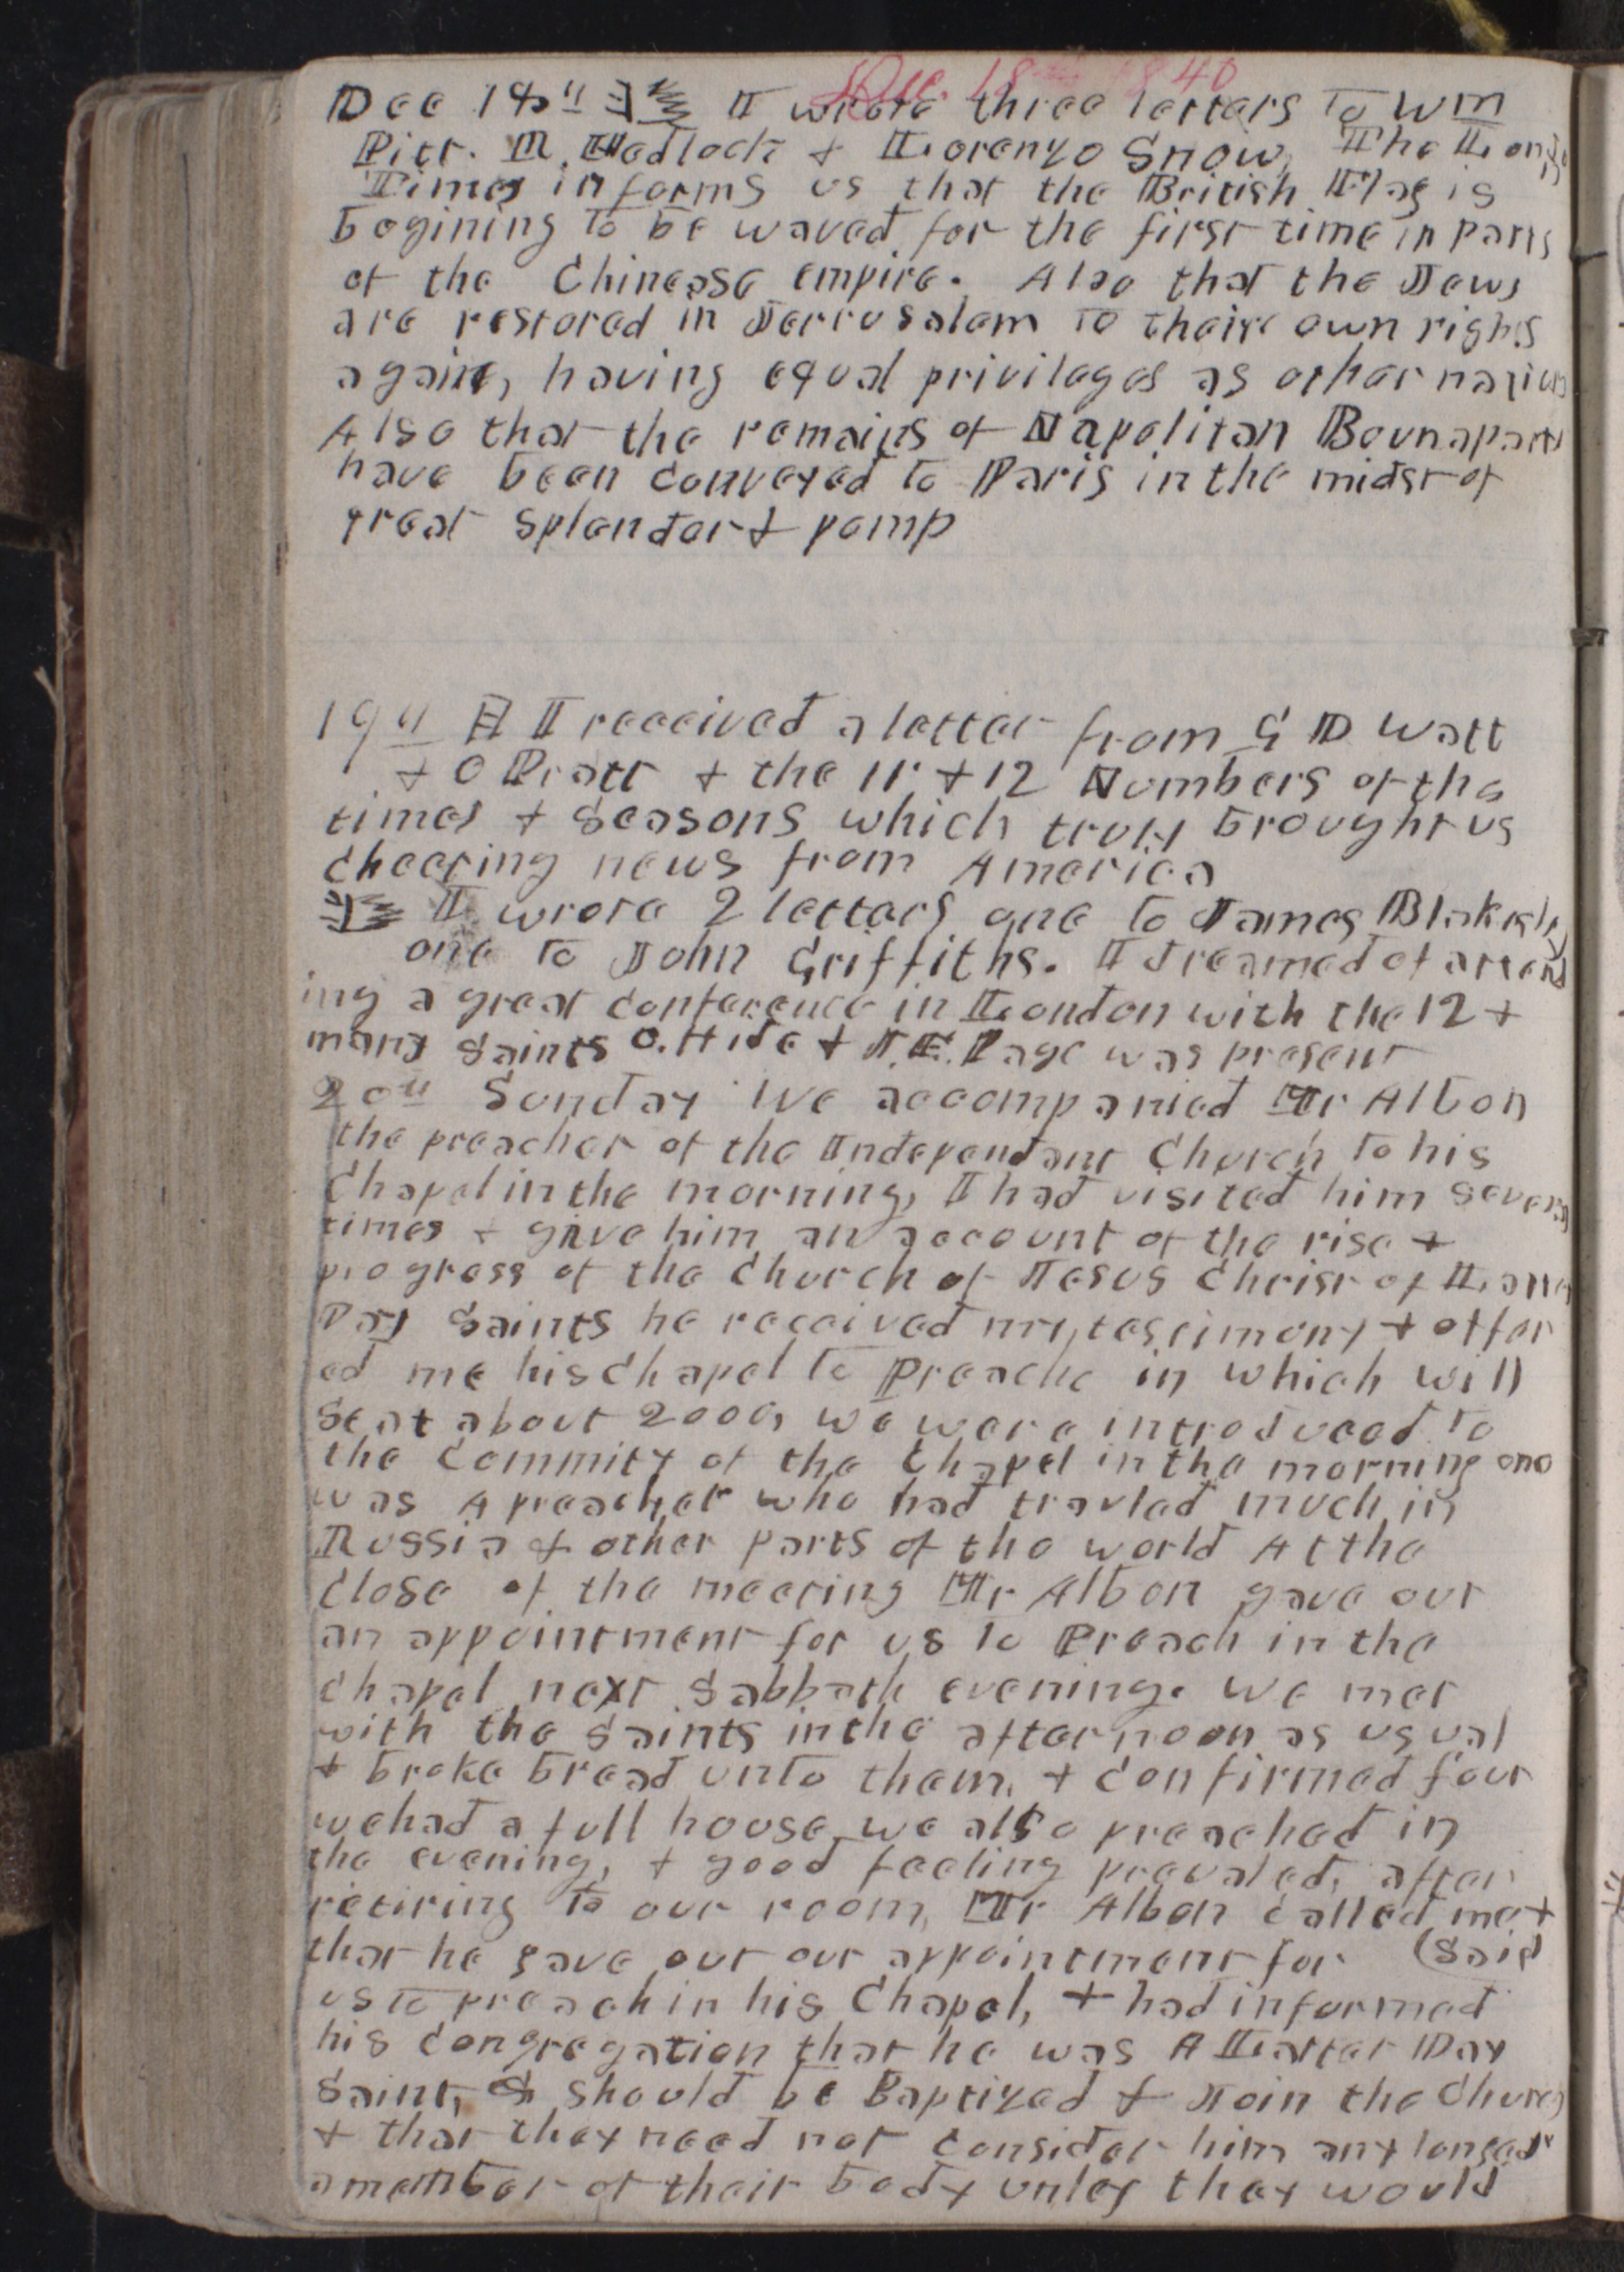 Dec. 18th 1840
Dec 18th I wrote three letters to Wm
Pitt. R. Hedlock & Lorenzo Snow, The London
Times informs us that the British Flag is
begining to be waved for the first time in parts
of the Chineese empire. Also that the Jews
are restored in Jerrusalem to their own rights
again, having equal privileges as other nations
Also that the remains of Napolitan Bounaparte
have been conveyed to Paris in the midst of
great splendor & pomp
19th I received a letter from G D Watt
& O Pratt & the 11 & 12 Numbers of the
times & Seasons which truly brought us
cheering news from America
I wrote 2 letters one to James Blakesly
one to John Griffiths. I dreamed of attend
ing a great conference in London with the 12 &
many Saints O. Hide & J. E. Page was present
20th Sunday We accompanied Mr Albon
the preacher of the Independant Church to his
Chapel in the morning, I had visited him several
times & give him an account of the rise &
progress of the Church of Jesus Christ of Latter
Day Saints he received my testimony & offer
ed me his chapel to Preach in which will
seat about 2000, we were introduced to
the Commity of the Chapel in the morning one
was A preacher who had travled much in
Russia & other parts of the world At the
close of the meeting Mr Albon gave out
an appointment for us to Preach in the
chapel next Sabbath evening. We met
with the Saints in the afternoon as usual
& broke bread unto them, & confirmed four
we had a full house we also preached in
the evening, & good feeling prevaled, after
retiring to our room, Mr Albon called me &
that he gave out our appointment for (said
us to preach in his Chapel, & had informed
his congregation that he was A Latter Day
Saint, & should be Baptized & Join the Church
& that they need not consider him any longer
a member of their body unles they would